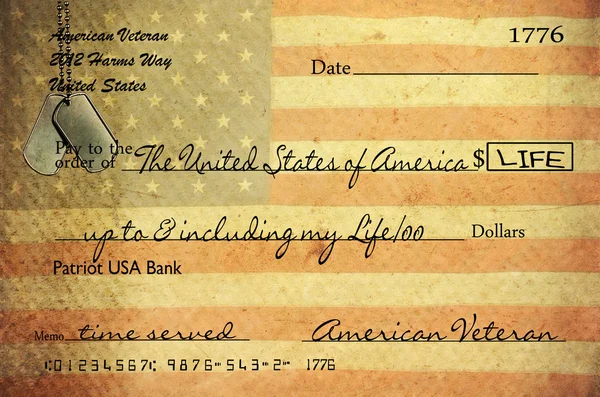 American Veteran
1776
2012 Harms Way
Date
United States
Pay to the
order of The United States of America $ LIFE
up to & including my Life/00 Dollars
Patriot USA Bank
Memo time served American Veteran
⑆01234567⑆ 9876⑉543⑉2⑈ 1776